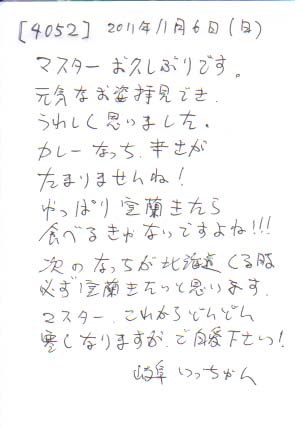 [4052] 2011年11月6日(日)
マスター お久しぶりです。
元気なお姿拝見でき、
うれしく思いました。
カレーなっち、辛さが
たまりませんね!
やっぱり室蘭きたら
食べるきゃないですよね!!!
次のなっちが北海道くる時
必ず室蘭きたいと思います。
マスター、これからどんどん
寒くなりますが、ご自愛下さい!
岐阜 いっちゃん